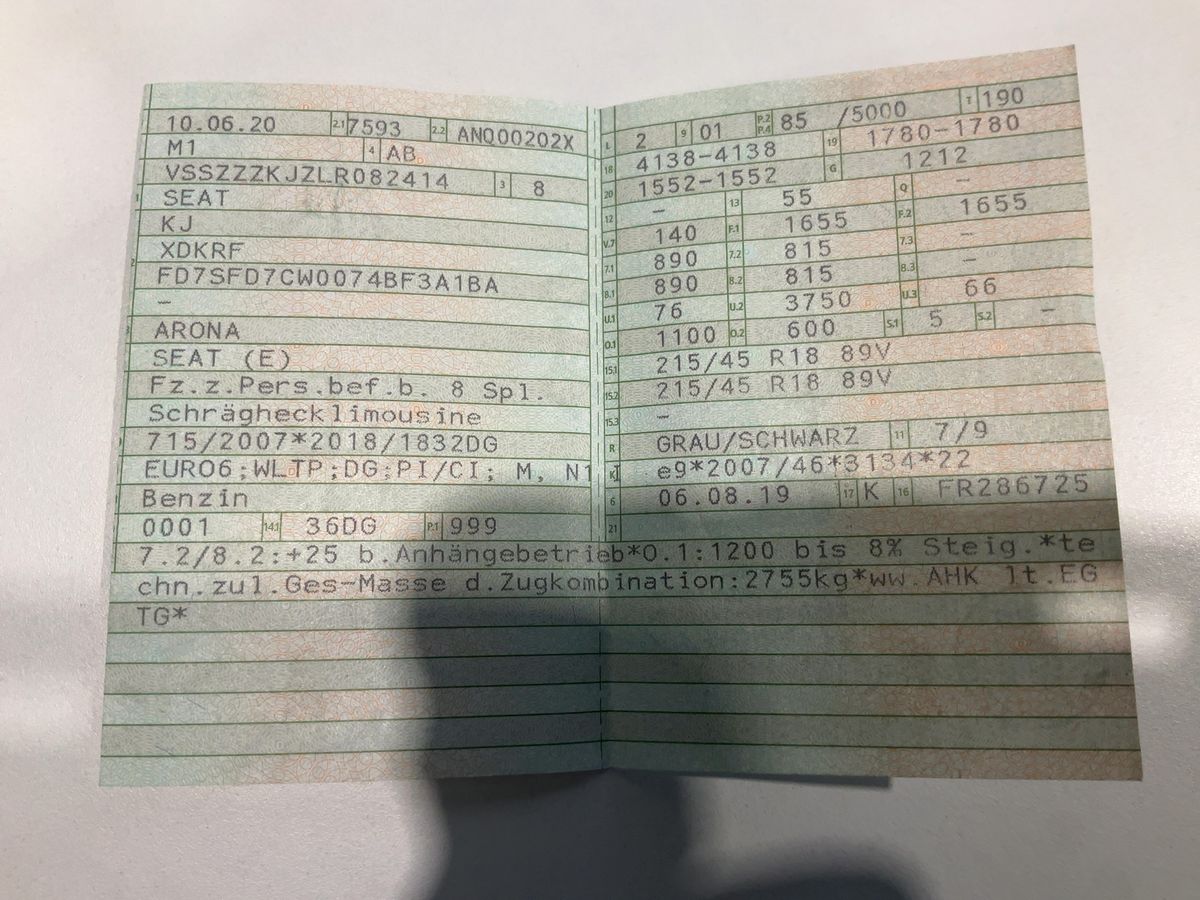 10.06.20 2.1 7593 2.2 ANQ00202X
M1 4 AB
VSSZZZKJZLR082414 3 8
SEAT
KJ
XDKRF
FD7SFD7CW0074BF3A1BA
–
ARONA
SEAT (E)
Fz.z.Pers.bef.b. 8 Spl.
Schräghecklimousine
715/2007*2018/1832DG
EURO6;WLTP;DG;PI/CI; M, N1 I
Benzin
0001 14.1 36DG P.1 999
L 2 9 01 P.2 P.4 85 /5000 T 190
18 4138-4138 19 1780-1780
20 1552-1552 G 1212
12 – 13 55 Q –
V.7 140 F.1 1655 F.2 1655
7.1 890 7.2 815 7.3 –
8.1 890 8.2 815 8.3 –
U.1 76 U.2 3750 U.3 66
O.1 1100 O.2 600 S.1 5 S.2 –
15.1 215/45 R18 89V
15.2 215/45 R18 89V
15.3 –
R GRAU/SCHWARZ 11 7/9
K e9*2007/46*3134*22
6 06.08.19 17 K 16 FR286725
21
7.2/8.2:+25 b.Anhängebetrieb*O.1:1200 bis 8% Steig.*te
chn.zul.Ges-Masse d.Zugkombination:2755kg*ww.AHK lt.EG
TG*